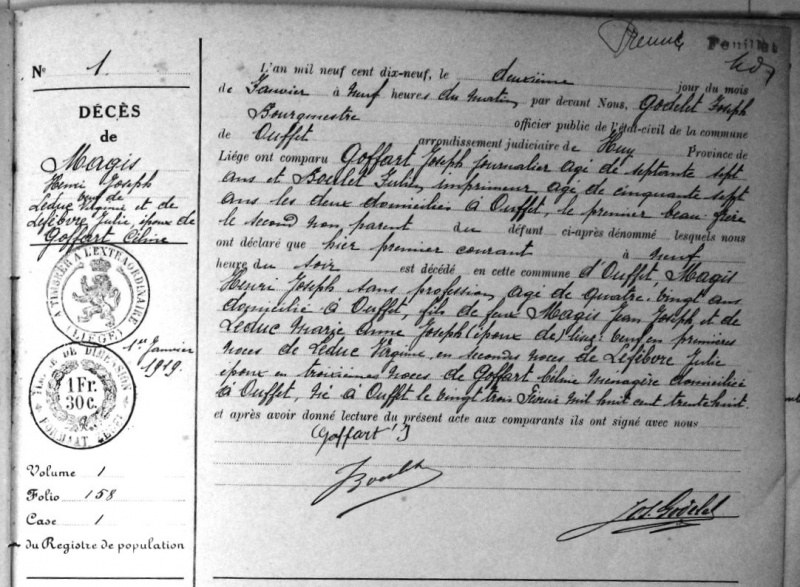 Feuillet
N° 1.
DÉCÈS
de
Magis
Henri Joseph
veuf de
Leduc Virginie et de
Lefèbvre Julie, époux de
Goffart Céline
A TIMBRER A L'EXTRAORDINAIRE
(LIÉGE)
1er Janvier
1919.
TIMBRE DE DIMENSION
1 Fr.
30 C.
Volume 1
Folio 158
Case 1
du Registre de population
L'an mil neuf cent dix-neuf, le deuxième jour du mois
de Janvier à neuf heures du matin, par devant Nous, Godelet Joseph
Bourgmestre officier public de l'état-civil de la commune
de Ouffet arrondissement judiciaire de Huy Province de
Liége ont comparu Goffart Joseph journalier âgé de septante sept
ans et Boulet Jules, imprimeur âgé de cinquante sept
ans les deux domiciliés à Ouffet, le premier beau-frère
le second non parent du défunt ci-après dénommé lesquels nous
ont déclaré que hier premier courant à neuf
heure du soir est décédé en cette commune d'Ouffet, Magis
Henri Joseph sans profession âgé de quatre-vingt ans
domicilié à Ouffet, fils de feux Magis Jean Joseph, et de
Leduc Marie Anne Joseph (époux de) veuf en premières
noces de Leduc Virginie, en secondes noces de Lefèbvre Julie
époux en troisièmes noces de Goffart Céline ménagère domiciliée
à Ouffet, né à Ouffet le vingt trois Février mil huit cent trente huit.
et après avoir donné lecture du présent acte aux comparants ils ont signé avec nous
Goffart J
J Boulet
Jos. Godelet